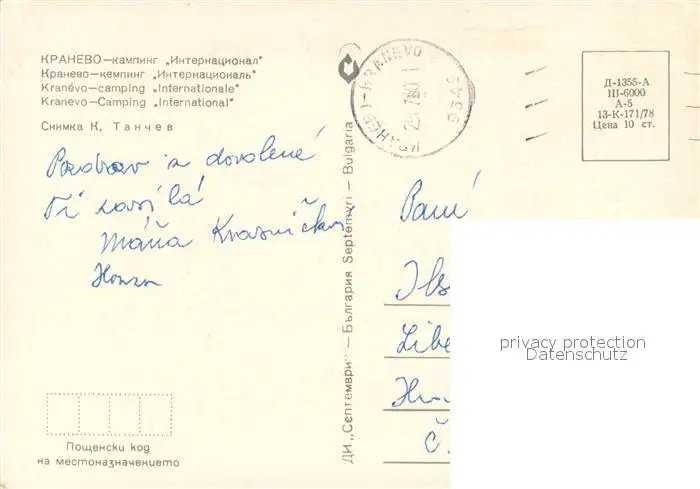 КРАНЕВО—кампинг „Интернационал"
Кранево—кемпинг „Интернациональ"
Kranévo—camping „Internationale"
Kranevo—Camping „International"
Снимка К. Танчев
Pozdrav z dovolené
Ti posílá
Máňa
Honza
Пощенски код
на местоназначението
ДИ „Септември" — България Septemvri — Bulgaria
KRANEVO
Д-1355-А
III-6000
А-5
13-К-171/78
Цена 10 ст.
Paní
Č.
privacy protection
Datenschutz